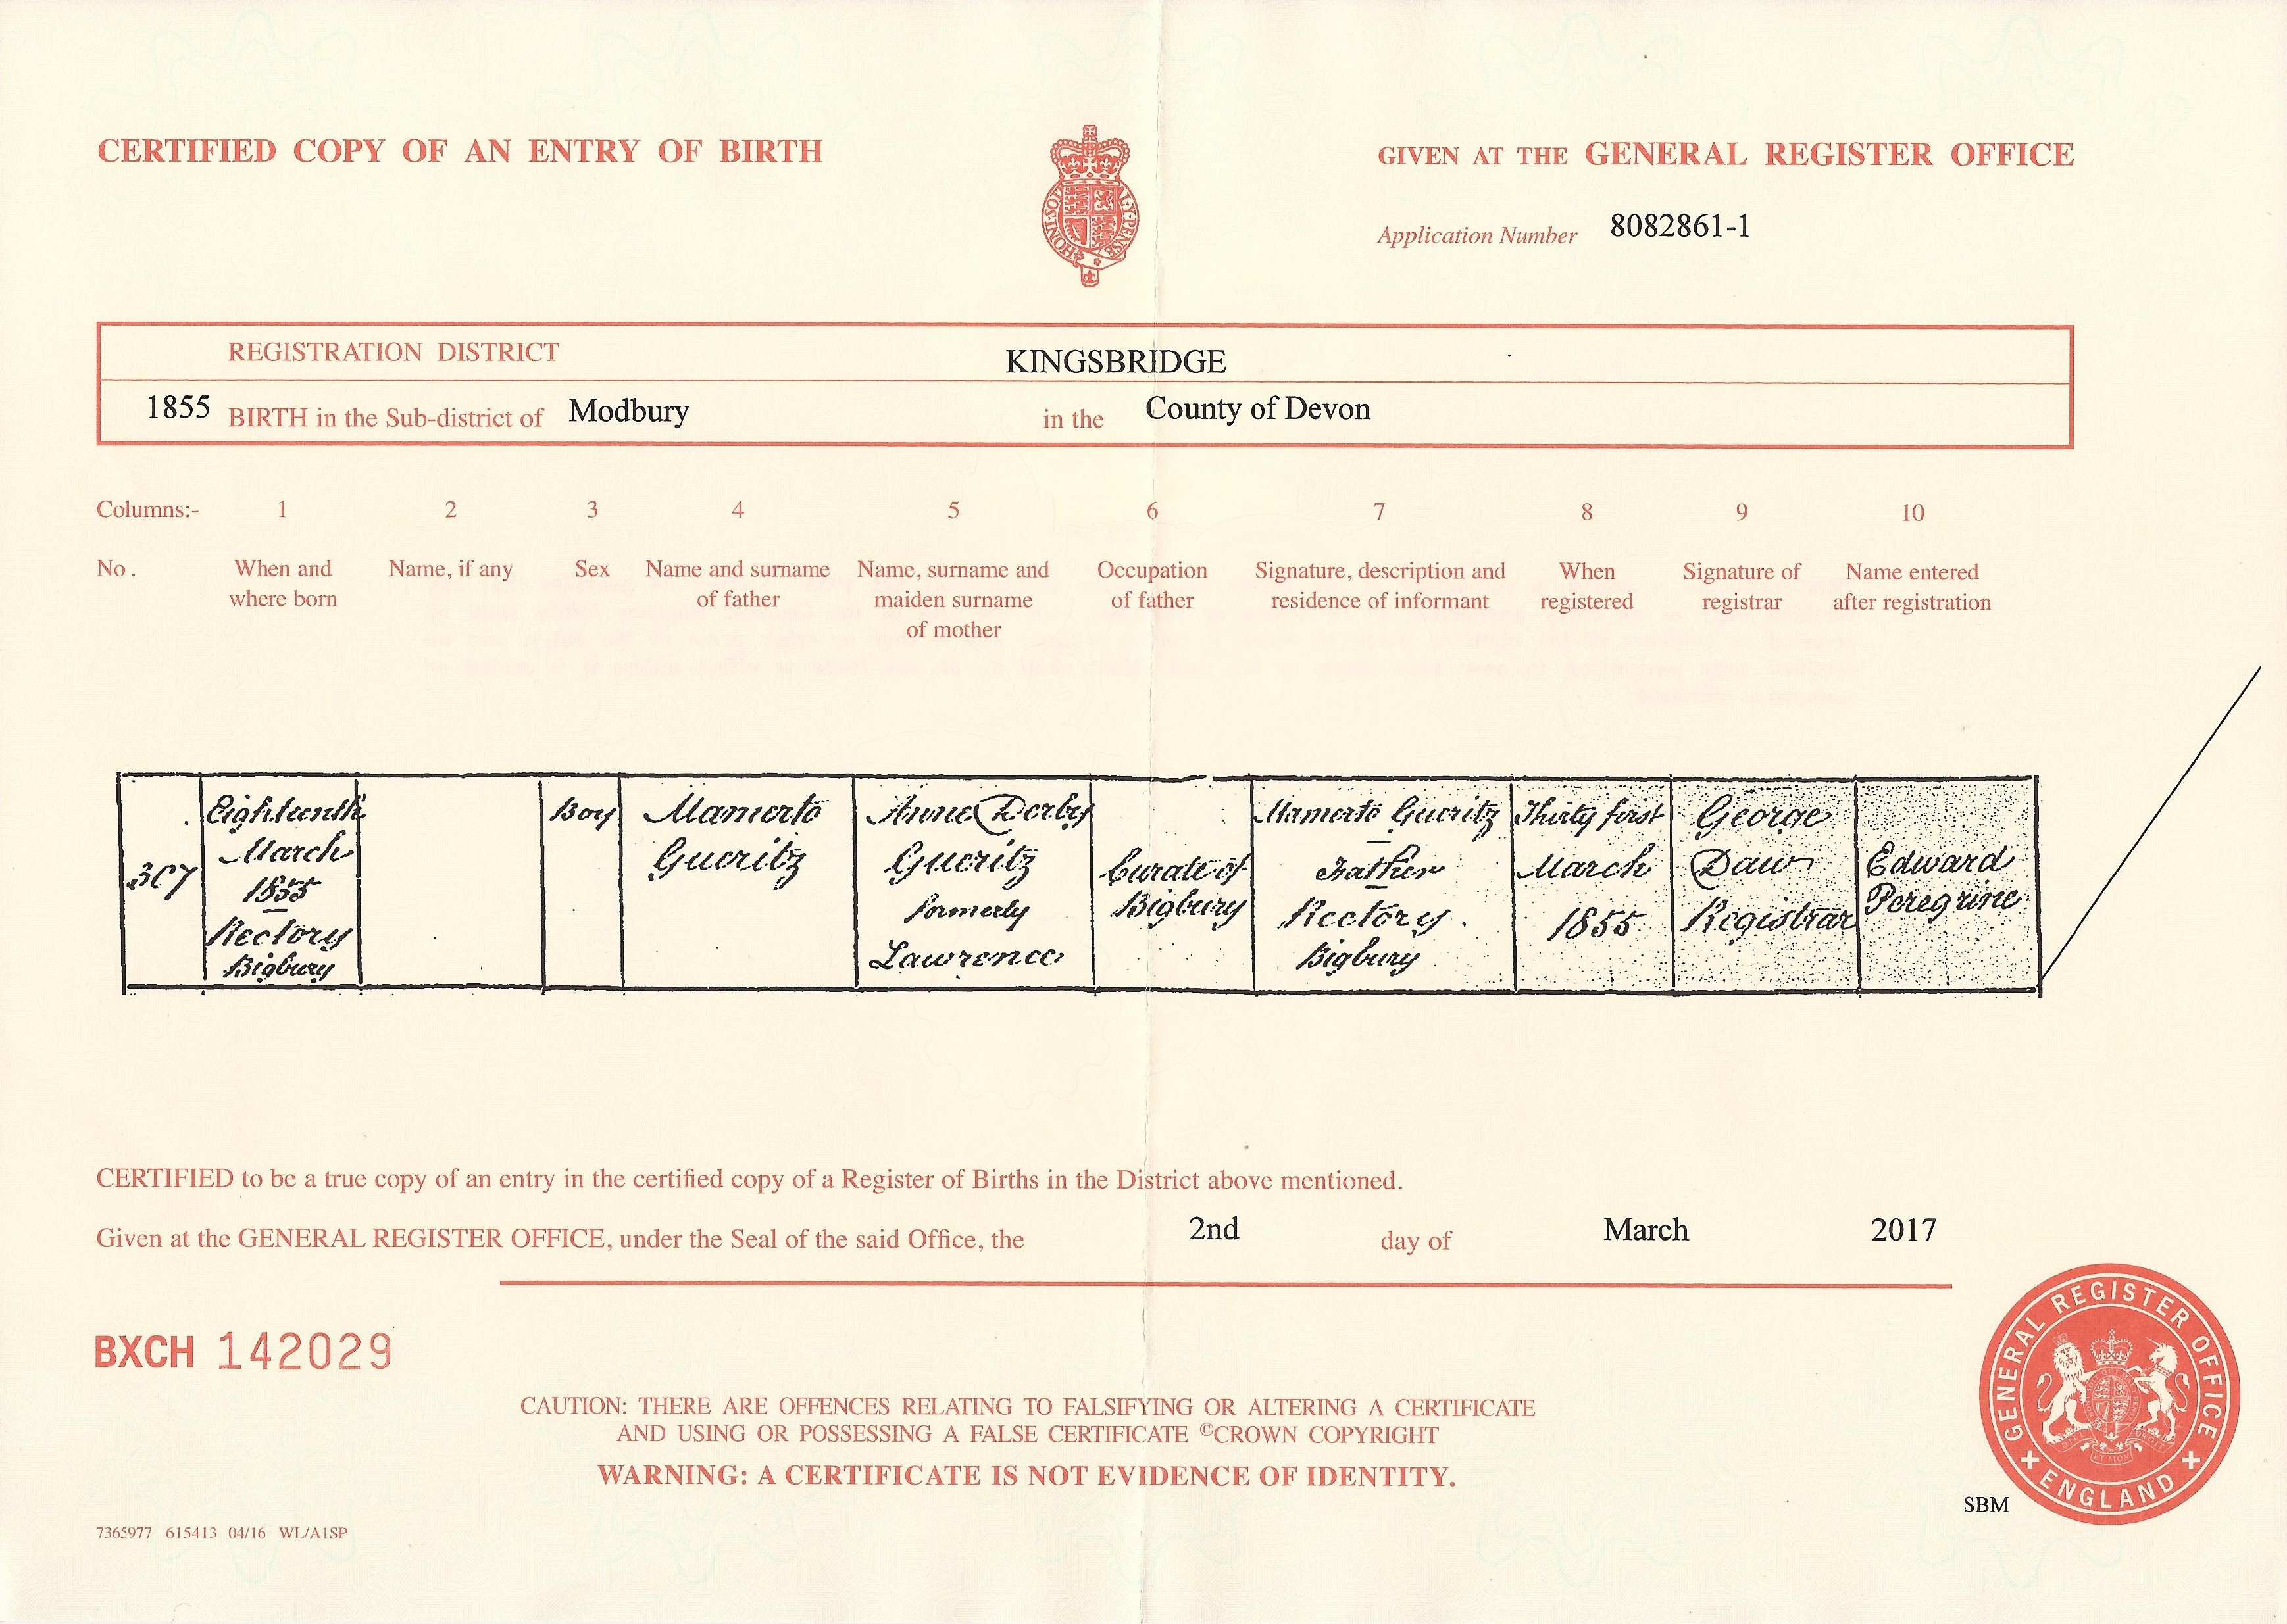 CERTIFIED COPY OF AN ENTRY OF BIRTH
GIVEN AT THE GENERAL REGISTER OFFICE
Application Number 8082861-1
REGISTRATION DISTRICT KINGSBRIDGE
1855 BIRTH in the Sub-district of Modbury in the County of Devon
Columns:- 1 2 3 4 5 6 7 8 9 10
No. When and where born
Name, if any
Sex
Name and surname of father
Name, surname and maiden surname of mother
Occupation of father
Signature, description and residence of informant
When registered
Signature of registrar
Name entered after registration
307
Eighteenth
March
1855
Rectory
Bigbury
Boy
Mamerto
Gueritz
Anne Derby
Gueritz
formerly
Lawrence
Curate of
Bigbury
Mamerto Gueritz
Father
Rectory
Bigbury
Thirty first
March
1855
George
Daw
Registrar
Edward
Peregrine
CERTIFIED to be a true copy of an entry in the certified copy of a Register of Births in the District above mentioned.
Given at the GENERAL REGISTER OFFICE, under the Seal of the said Office, the 2nd day of March 2017
BXCH 142029
CAUTION: THERE ARE OFFENCES RELATING TO FALSIFYING OR ALTERING A CERTIFICATE
AND USING OR POSSESSING A FALSE CERTIFICATE ©CROWN COPYRIGHT
WARNING: A CERTIFICATE IS NOT EVIDENCE OF IDENTITY.
GENERAL REGISTER OFFICE
ENGLAND
SBM
7365977 615413 04/16 WL/A1SP